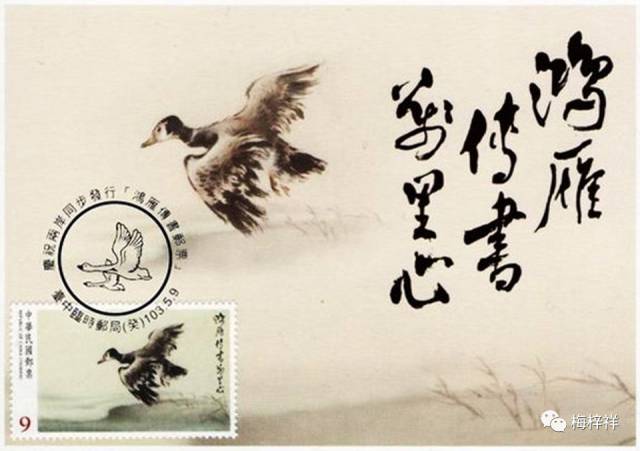 鴻雁
傳書
萬里心
慶祝兩岸同步發行「鴻雁傳書郵票」
臺中臨時郵局(癸)103.5.9
中華民國郵票
REPUBLIC OF CHINA (TAIWAN)
9
鴻雁傳書萬里心
梅梓祥